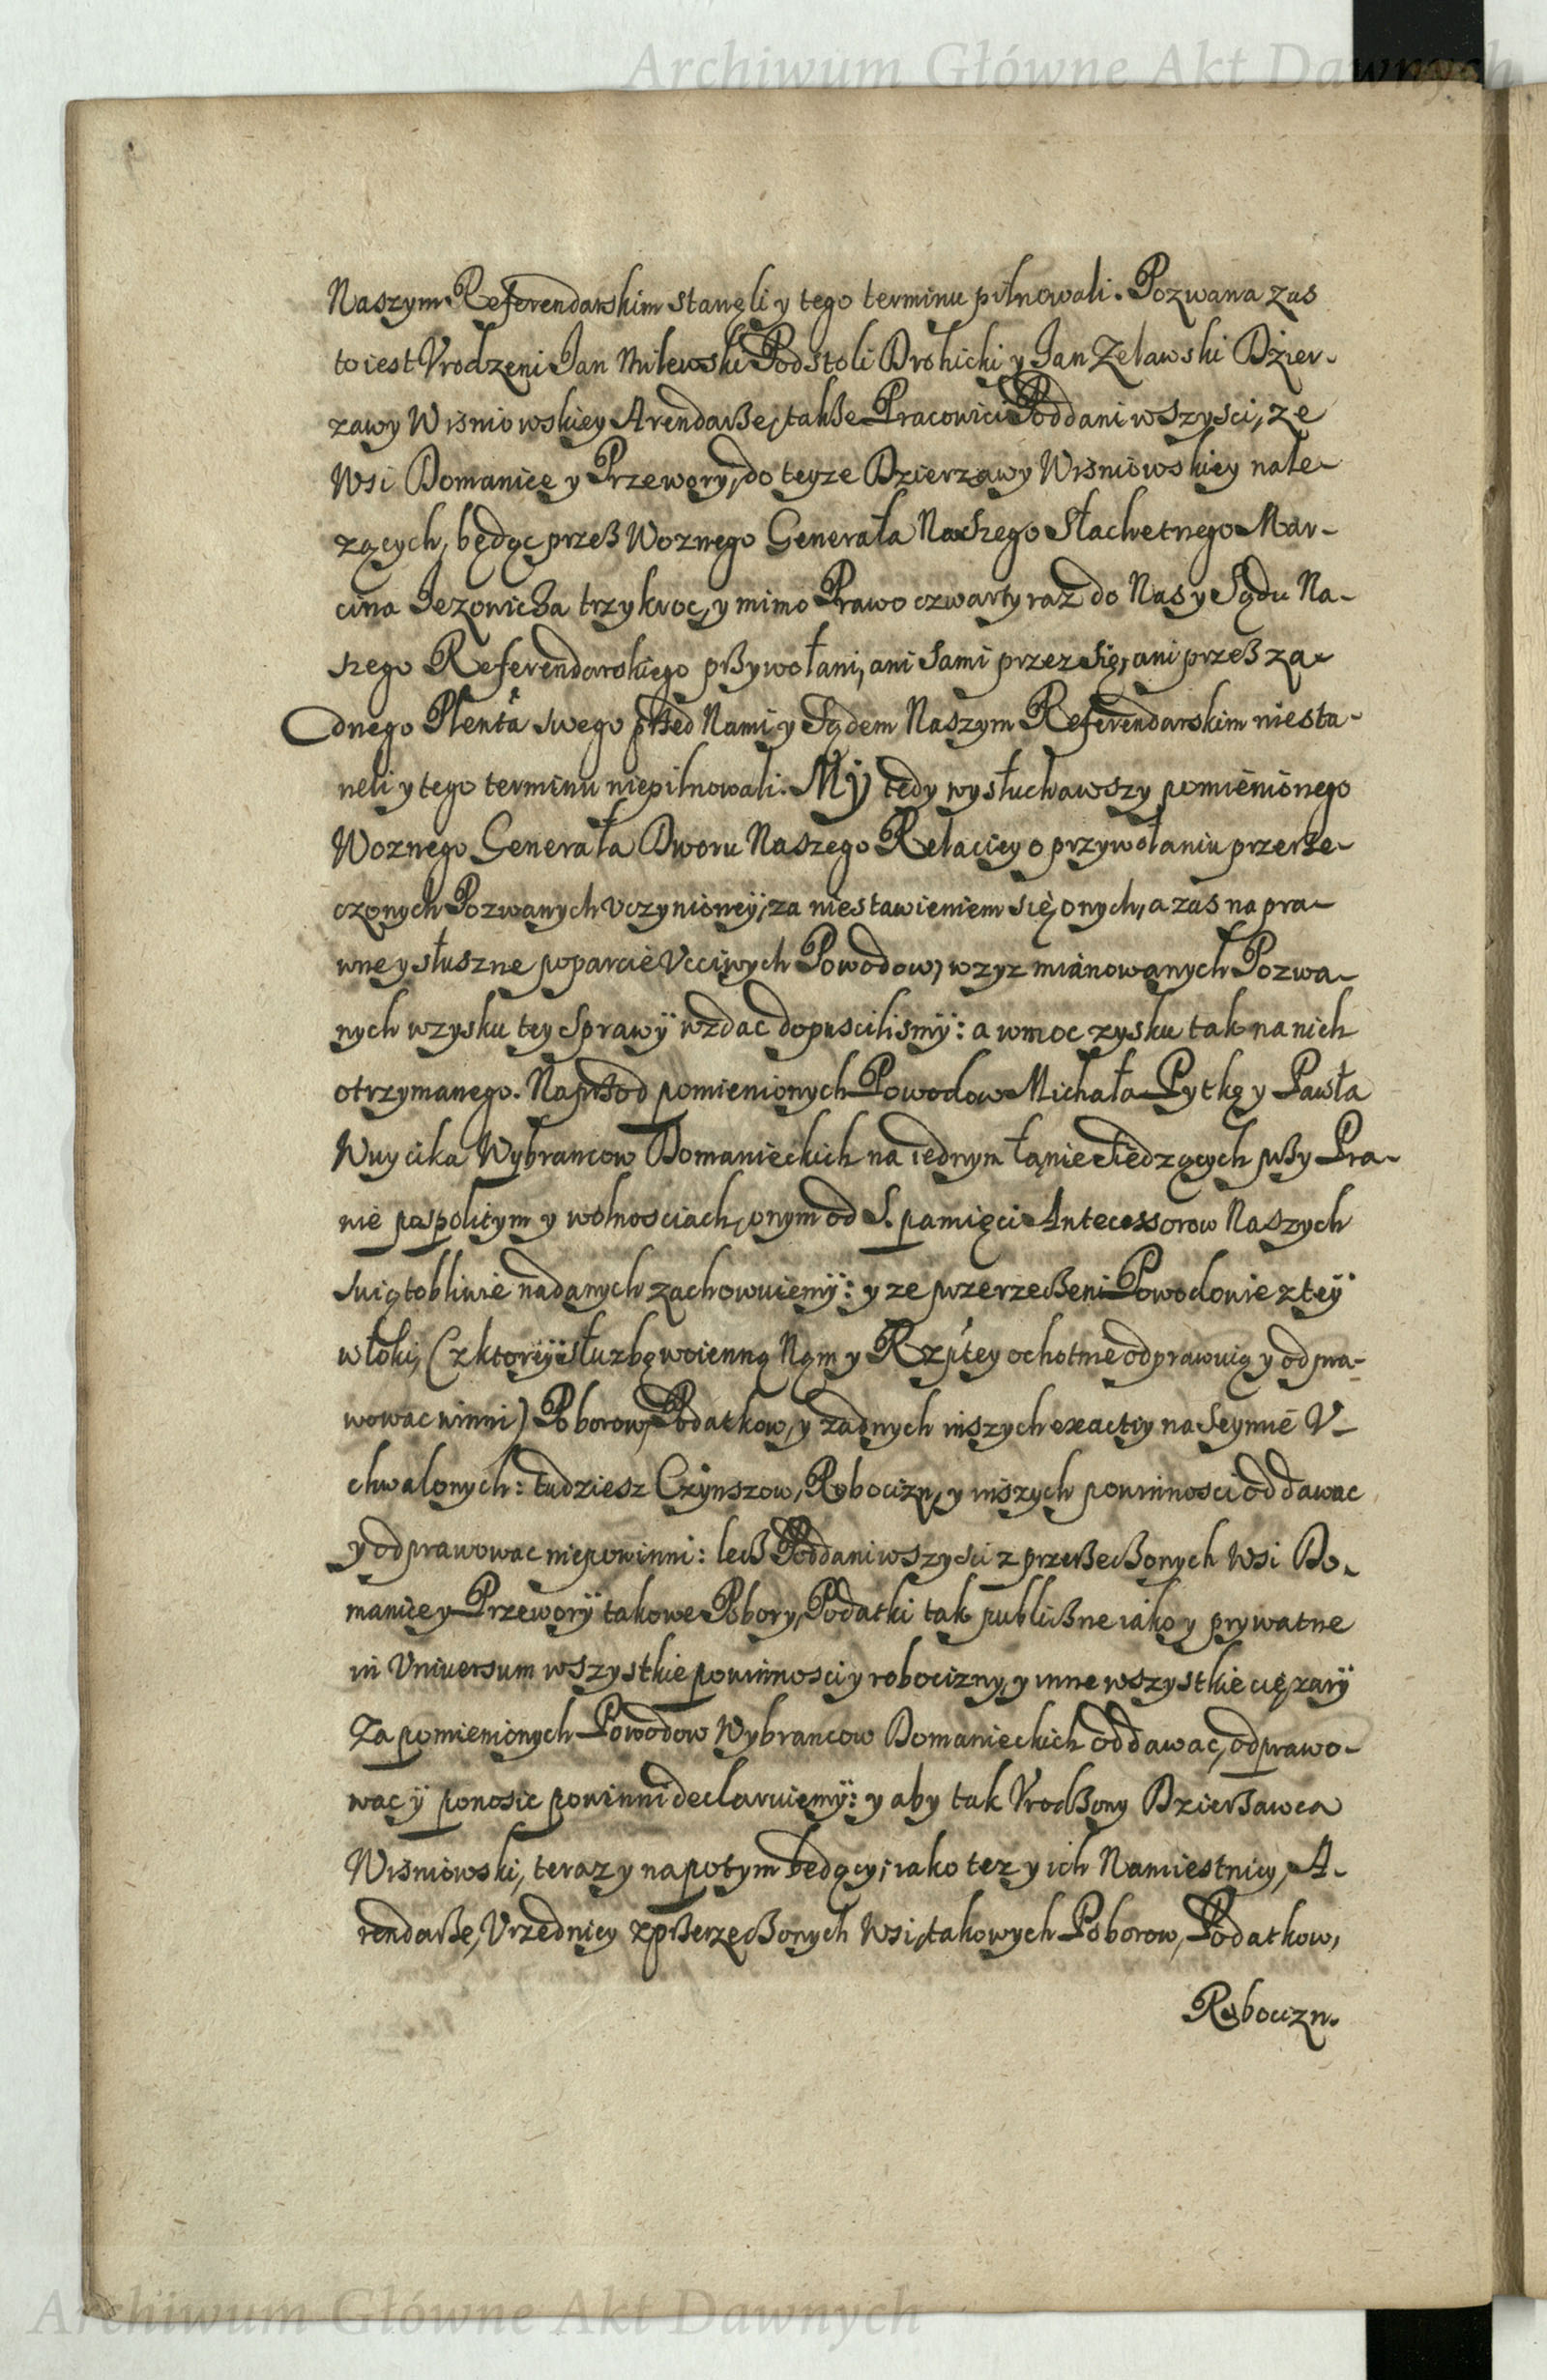 Archiwum Główne Akt Dawnych
Naszym Referendarskim stanęli y tego terminu pilnowali. Pozwana zas
to iest Vrodzeni Jan Milewski Podstoli Drohicki y Jan Zelawski Dzier-
zawy Wisniowskiey Arendaße, takße Pracowici Poddani wszysci, ze
Wsi Domanice y Przewory, do teyze Dzierzawy Wisniowskiey nale-
zących, będąc przeß Woznego Generała Naszego Słachetnego Mar-
cina Jezowicza trzykroc, y mimo Prawo czwarty raz do Nas y Sądu Na-
szego Referendarskiego pßywołani, ani sami przez się, ani przeß za-
dnego Plenta swego pßed Nami y Sądem Naszym Referendarskim niesta-
neli y tego terminu niepilnowali. My tedy wysłuchawszy pomienionego
Woznego Generała Dworu Naszego Relaciey o przywołaniu przerze-
czonych Pozwanych vczynioneÿ, za niestawieniem się onych, a zas na pra-
wne y słuszne poparcie Vcciwych Powodow, wzyz mianowanych Pozwa-
nych w zysku tey Sprawÿ wzdac dopuscilismÿ: a w moc zysku tak na nich
otrzymanego. Napßod pomienionych Powodow Michała Pytkę y Pawła
Wuycika Wybrancow Domanieckich na iednym łanie siedzących pßy Pra-
wie pospolitym y wolnosciach, onym od S. pamięci Antecessorow Naszych
swiątobliwie nadanych zachowuiemÿ: y ze przerzeßeni Powodowie z teÿ
włoki, (z ktoreÿ służbę woienną Nąm y Rzptey ochotnie odprawuią y odpra-
wowac winni) Poborow, Podatkow, y zadnych inszych exactiy na Seymie V-
chwalonych: tudziesz Czynszow, Robocizn, y inszych powinnosci oddawac
y odprawowac niepowinni: lecß Poddani wszysci z przeßeczonych Wsi Do-
manice y Przeworÿ takowe Pobory, Podatki tak publiczne iako y prywatne
in Vniversum wszystkie powinnosci y robocizny, y inne wszystkie ciężarÿ
Za pomienionych Powodow Wybrancow Domanieckich oddawac, odprawo-
wac ÿ ponosic powinni declaruiemÿ: y aby tak Vrodzony Dzierżawca
Wisniowski, teraz y napotym będący, iako tez y ich Namiestnicy, A-
rendaße, Vrzednicy z pßerzeczonych Wsi, takowych Poborow, Podatkow,
Robocizn.
Archiwum Główne Akt Dawnych